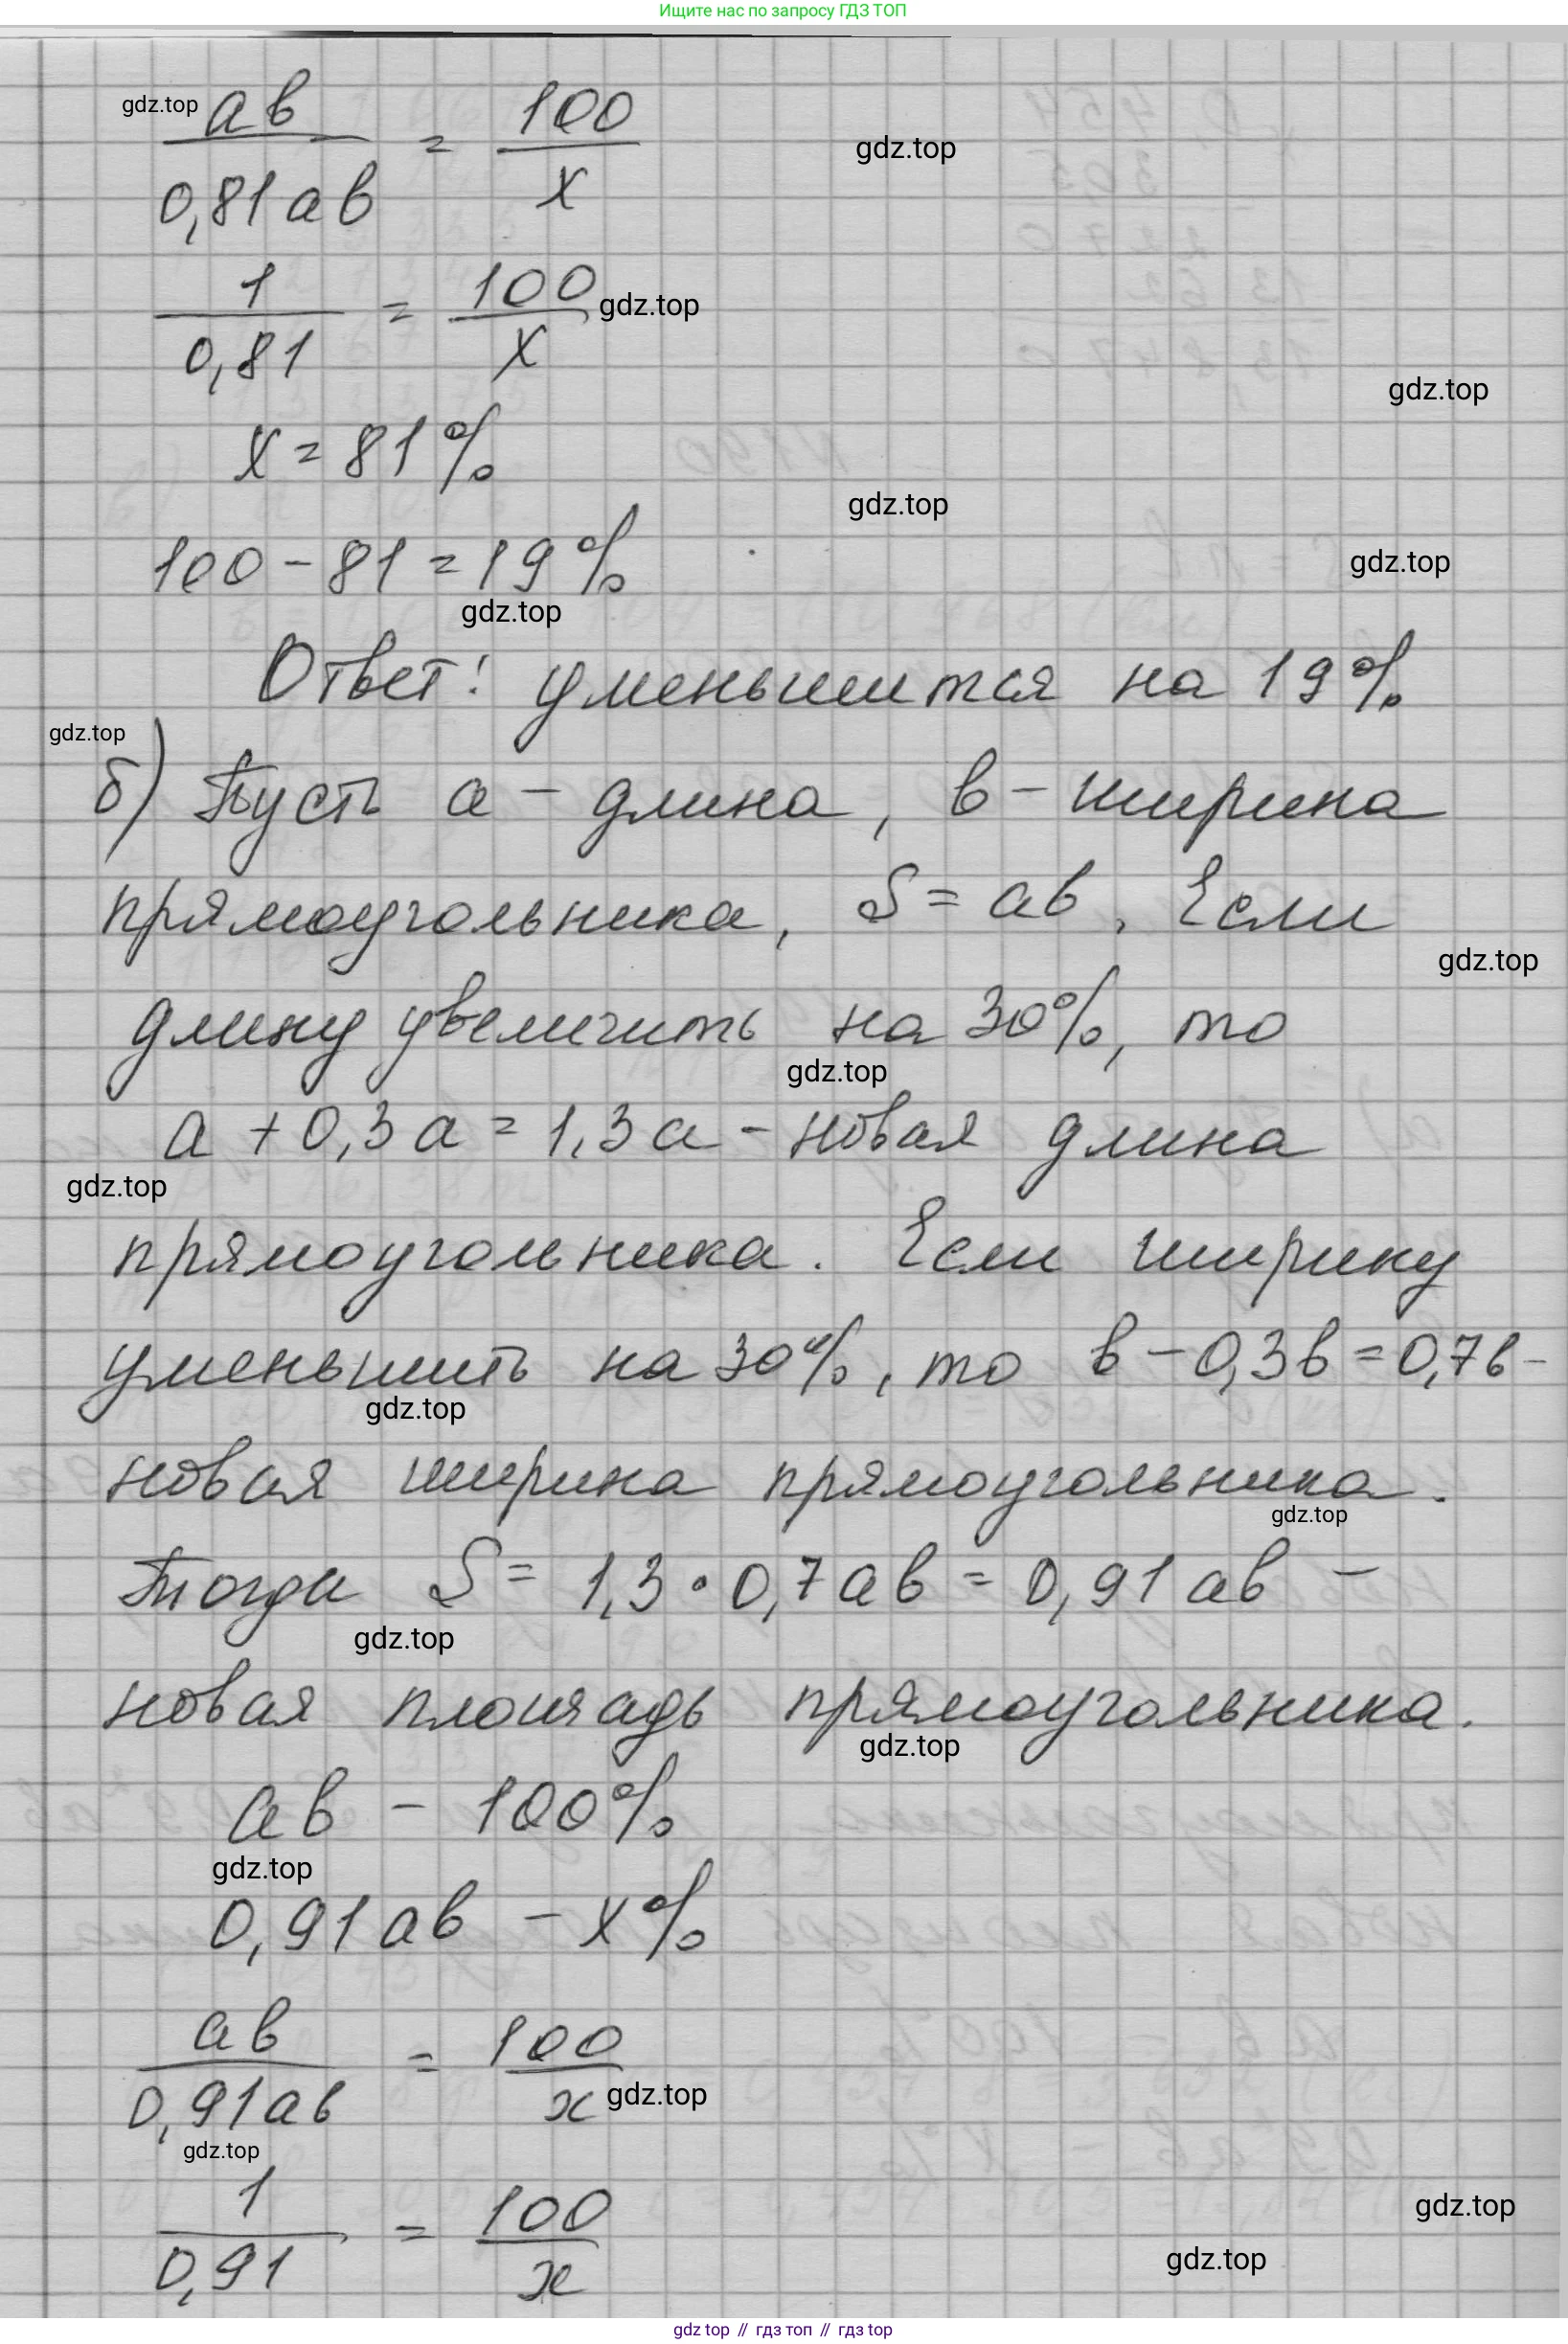 Ищите нас по запросу ГДЗ ТОП
gdz.top
ав / 0,81ав = 100 / x
gdz.top
1 / 0,81 = 100 / x
gdz.top
gdz.top
x = 81%
gdz.top
100 - 81 = 19%
gdz.top
gdz.top
Ответ: уменьшится на 19%
gdz.top
б) Пусть а - длина, в - ширина
прямоугольника, S = ав. Если
gdz.top
длину увеличить на 30%, то
gdz.top
а + 0,3а = 1,3а - новая длина
gdz.top
прямоугольника. Если ширину
уменьшить на 30%, то в - 0,3в = 0,7в -
gdz.top
новая ширина прямоугольника.
gdz.top
Тогда S = 1,3 · 0,7ав = 0,91ав -
gdz.top
новая площадь прямоугольника.
gdz.top
ав - 100%
gdz.top
0,91ав - x%
ав / 0,91ав = 100 / x
gdz.top
gdz.top
1 / 0,91 = 100 / x
gdz.top
gdz.top
gdz top // гдз топ // гдз top